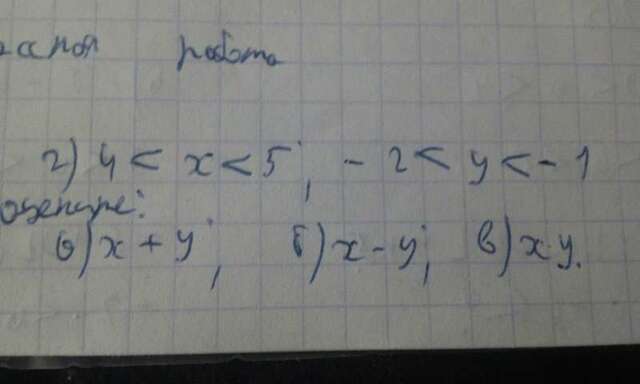 ссная работа
2) 4 < x < 5; -2 < y < -1
оцените:
а) x + y; б) x - y; в) xy.